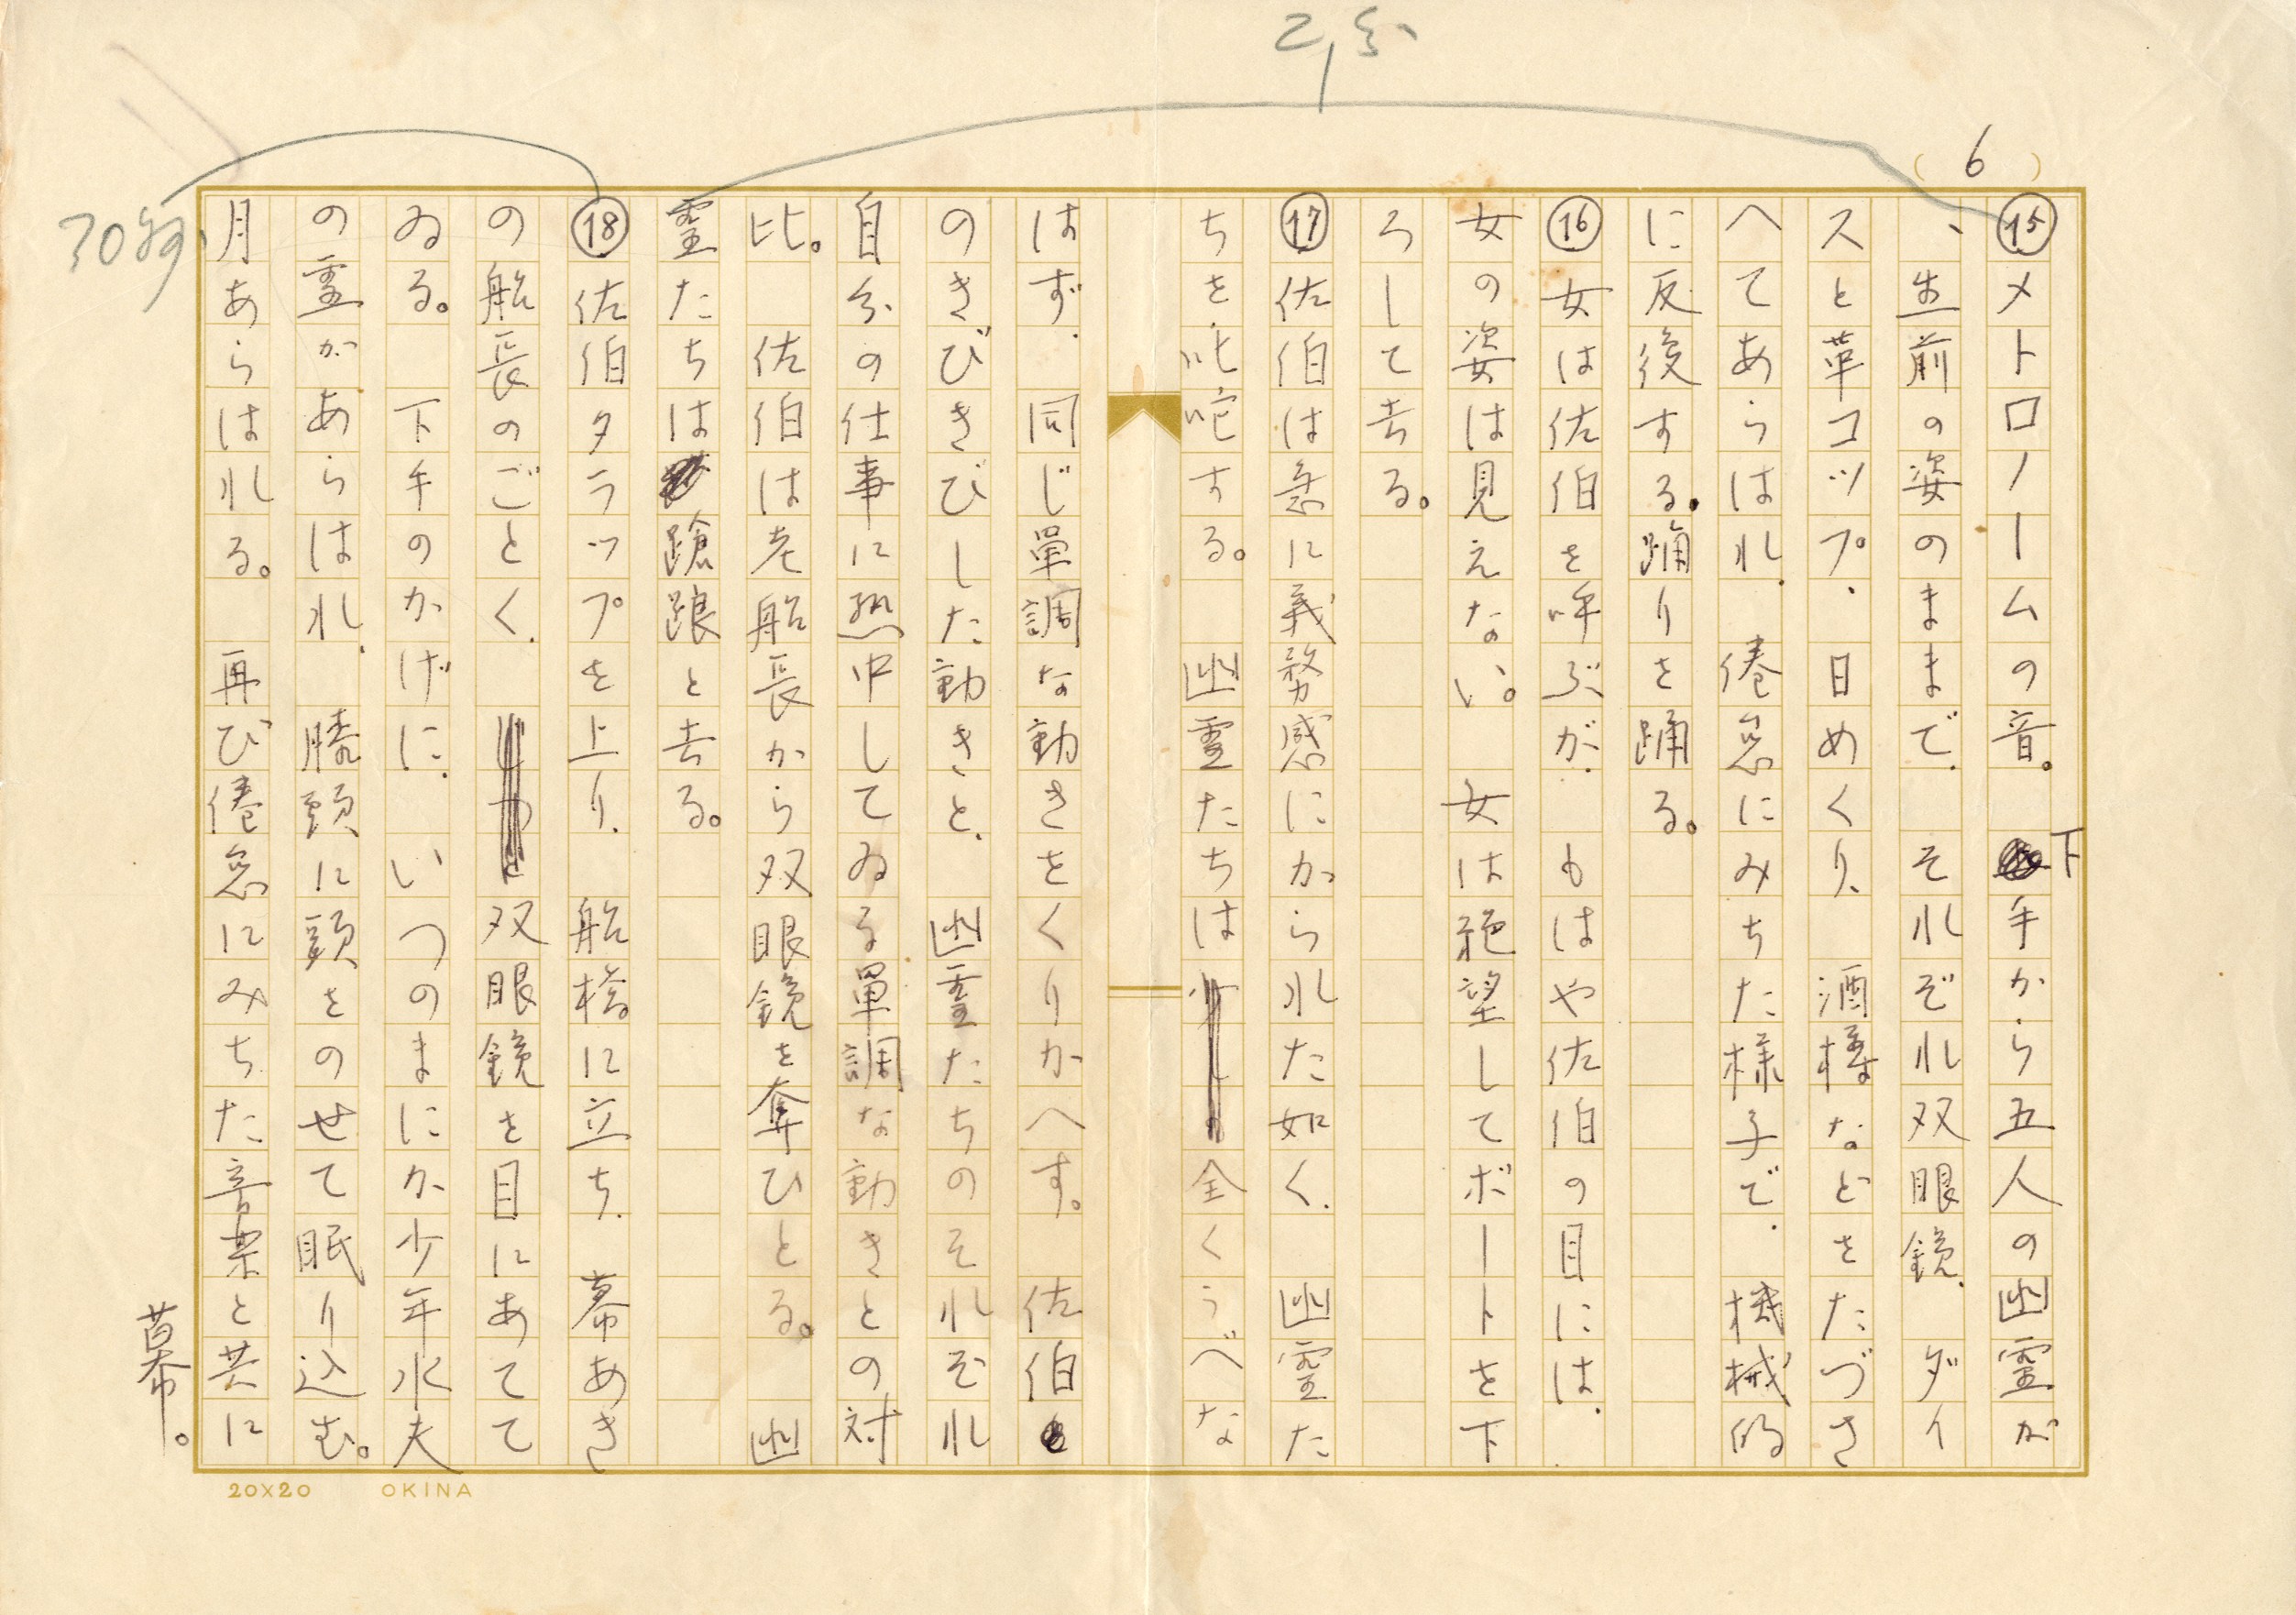 2分
(6)
⑮メトロノームの音。下手から五人の幽霊が
、生前の姿のままで、それぞれ双眼鏡、ダイ
スと革コップ、日めくり、酒樽などをたづさ
へてあらはれ、倦怠にみちた様子で、機械的
に反復する踊りを踊る。
⑯女は佐伯を呼ぶが、もはや佐伯の目には、
女の姿は見えない。女は絶望してボートを下
ろして去る。
⑰佐伯は急に義務感にかられた如く、幽霊た
ちを叱咤する。幽霊たちは全くうべな
はず、同じ単調な動きをくりかへす。佐伯
のきびきびした動きと、幽霊たちのそれぞれ
自分の仕事に熱中してゐる単調な動きとの対
比。佐伯は老船長から双眼鏡を奪ひとる。幽
霊たちは蹌踉と去る。
⑱佐伯タラップを上り、船橋に立ち、幕あき
の船長のごとく、双眼鏡を目にあてて
ゐる。下手のかげに、いつのまにか少年水夫
の霊があらはれ、膝頭に頭をのせて眠り込む。
月あらはれる。再び倦怠にみちた音楽と共に
幕。
30秒
20×20 OKINA